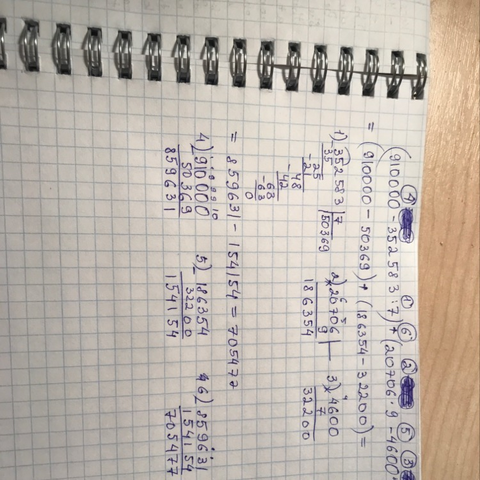 ④ ① ⑥ ② ⑤ ③
(910000-352583:7)+(20706·9-4600·
=(910000-50369)+(186354-32200)=
1) 352583 | 7
35 | 50369
25
-21
48
-42
63
-63
0
2) 20706
× 9
186354
3) 4600
7
32200
= 859631-154154=705477
4) 910000
50369
859631
5) 186354
32200
154154
6) 859631
154154
705477